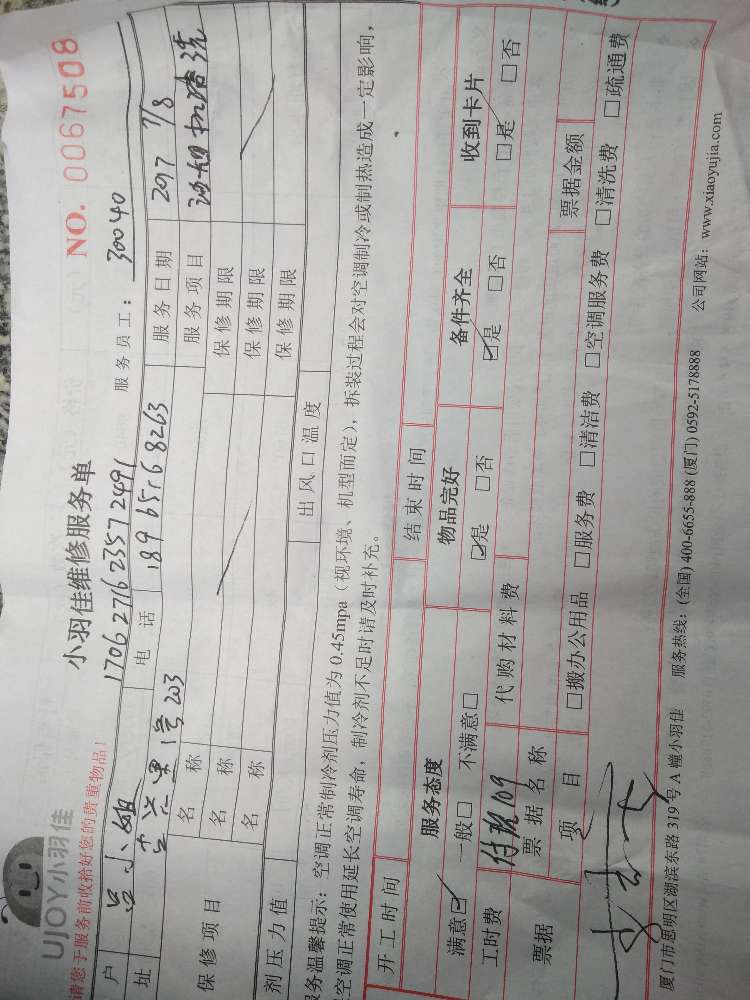 UJOY小羽佳
请您于服务前收拾好您的贵重物品！
小羽佳维修服务单
NO. 0067508
1706271623572491
服务员工： 30040
户 吕小姐 电话 18965168263 服务日期 2017 7/8
址 1号203 服务项目 油烟机清洗
保修项目 名称 保修期限
名称 保修期限
名称 保修期限
剂压力值 出风口温度
务温馨提示：空调正常制冷剂压力值为0.45mpa（视环境、机型而定），拆装过程会对空调制冷或制热造成一定影响，
空调正常使用延长空调寿命，制冷剂不足时请及时补充。
开工时间 结束时间
服务态度 物品完好 备件齐全 收到卡片
满意☑ 一般□ 不满意□ ☑是 □否 ☑是 □否 □是 □否
工时费 109 代购材料费
票据 票据名称 票据金额
项目 □搬办公用品 □服务费 □清洁费 □空调服务费 □清洗费 □疏通费
厦门市思明区湖滨东路319号A幢小羽佳 服务热线：(全国) 400-6655-888 (厦门) 0592-5178888 公司网站：www.xiaoyujia.com